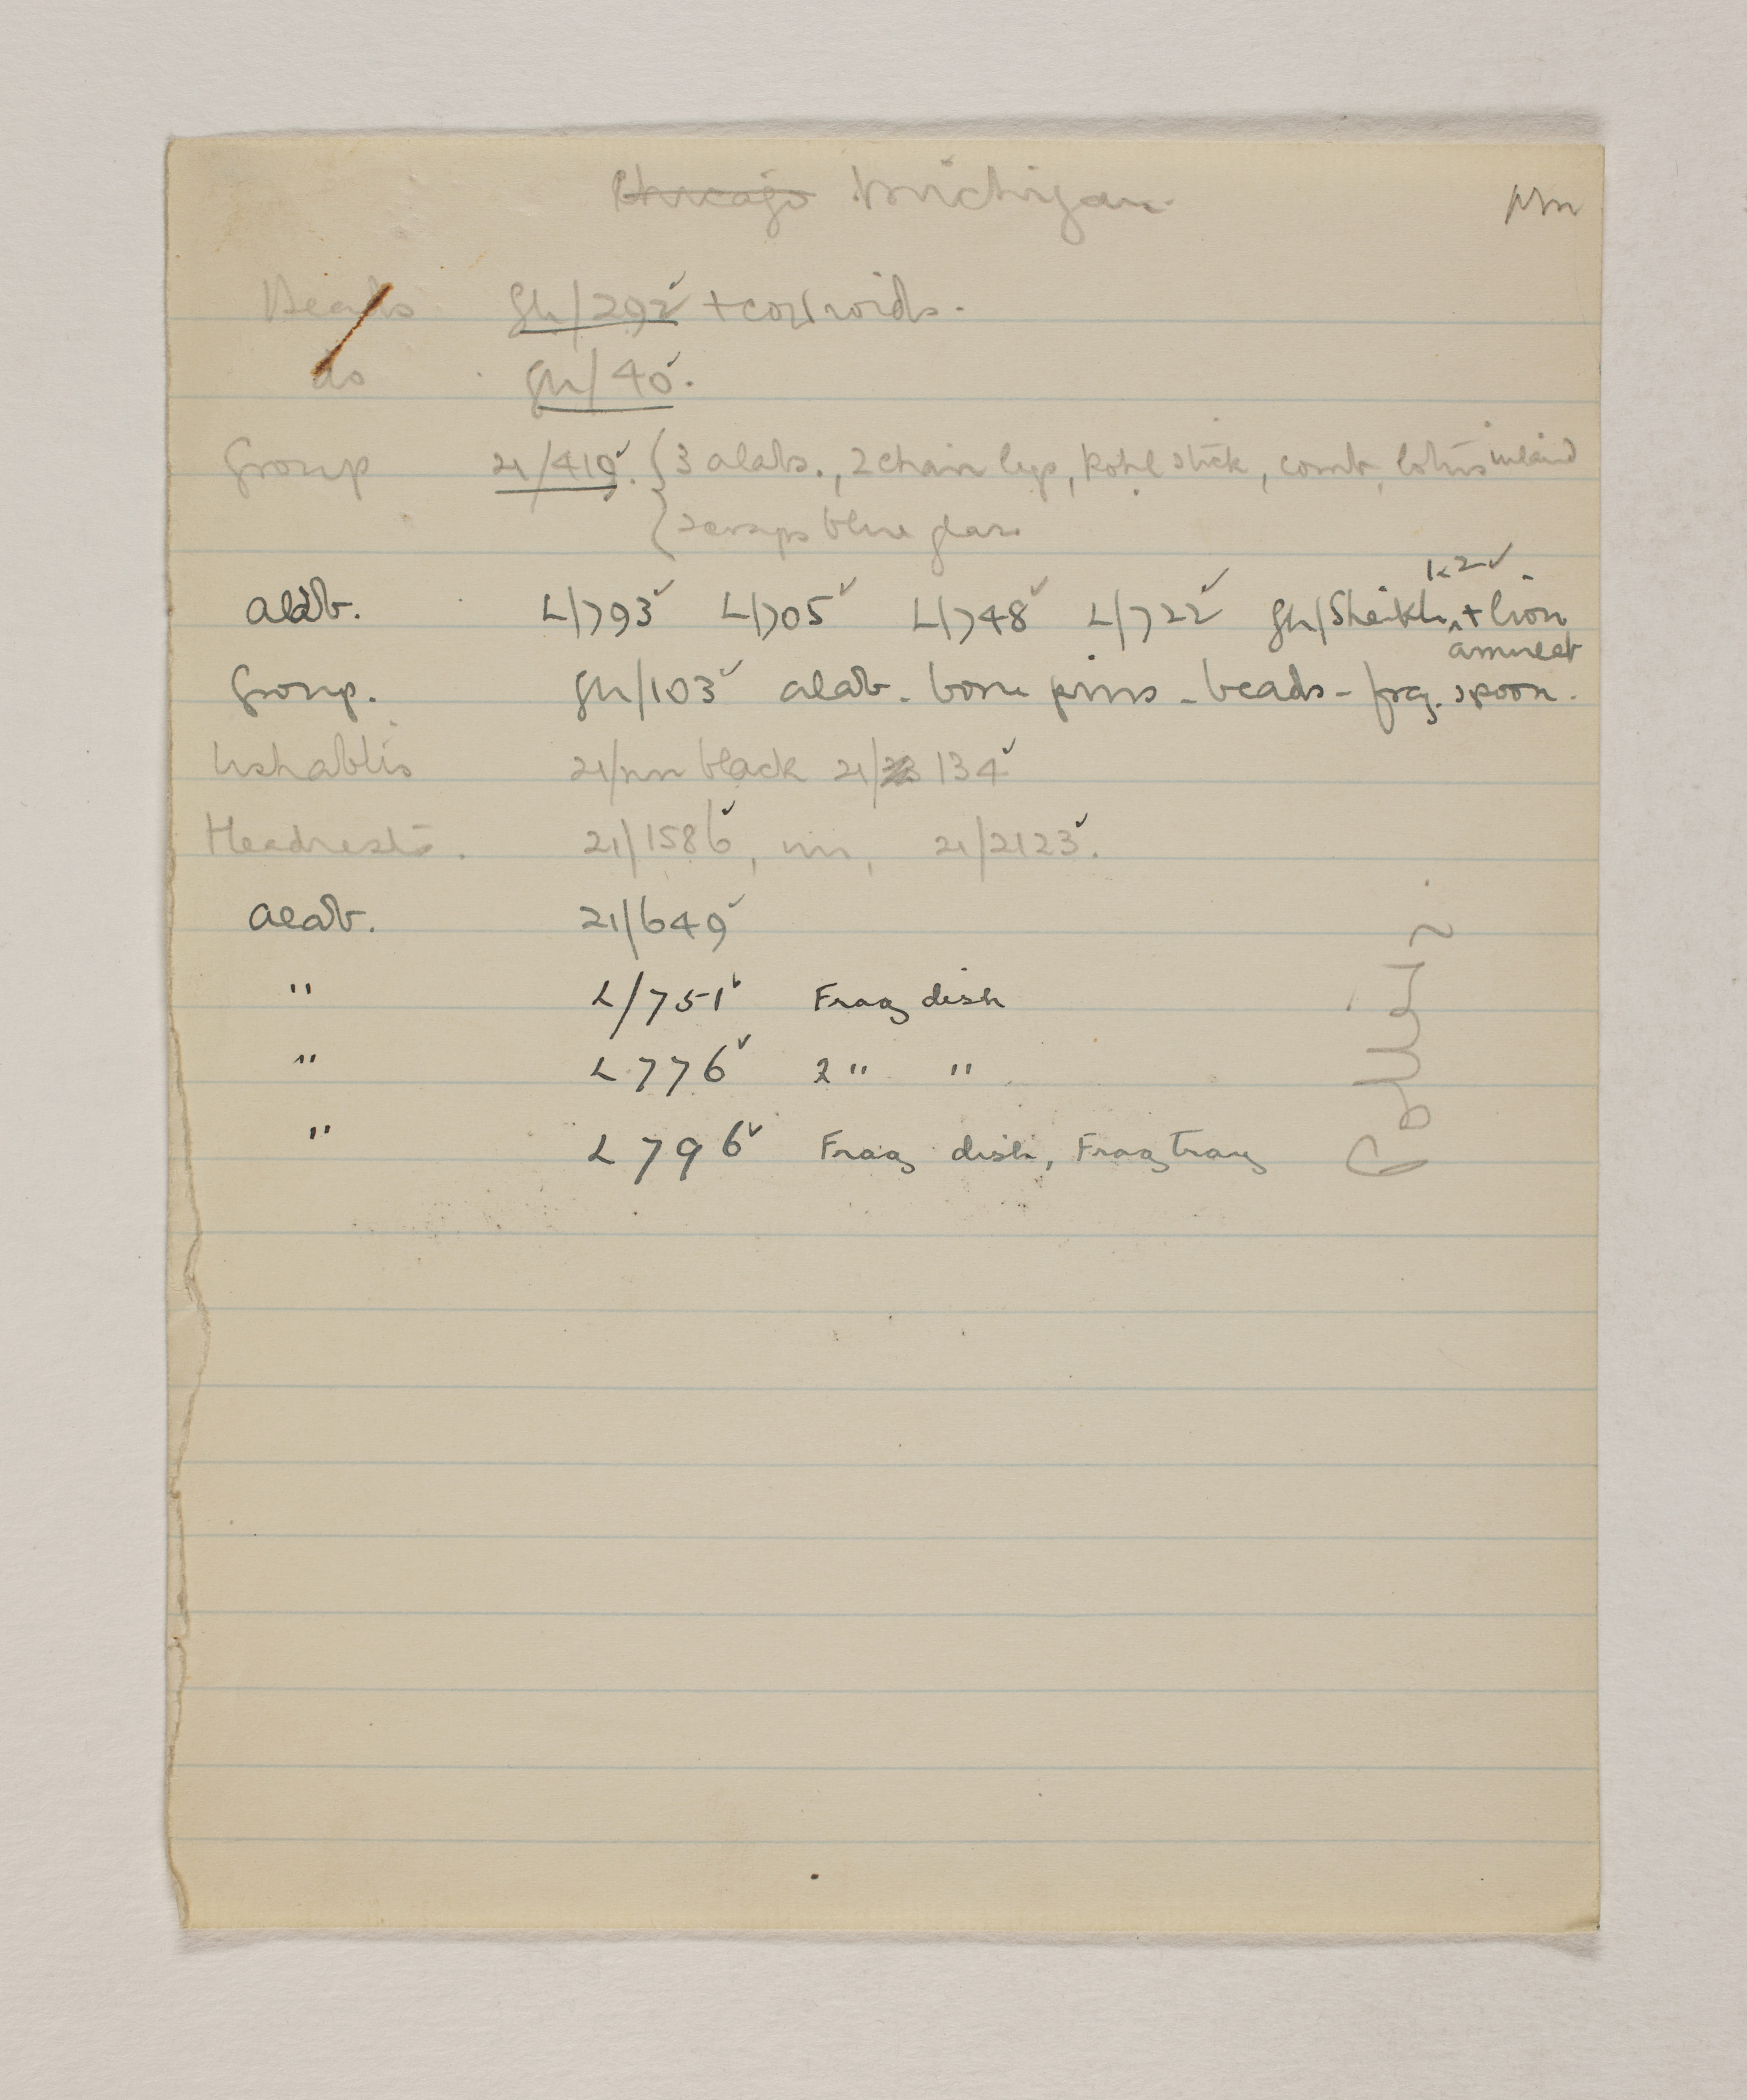 Chicago Michigan
Beads Gh/292 ✓ + cowroids.
do Gh/40 ✓.
Group 21/419 ✓. { 3 alabs., 2 chair legs, kohl stick, comb, lotus inlaid
scraps blue glass
k2 ✓
alab. L/793 ✓ L/705 ✓ L/748 ✓ L/722 ✓ Gh/Sheikh + lion
amulet
Group. Gh/103 ✓ alab. bone pins - beads - frag. spoon.
Ushabtis 21/nn black 21/ 134 ✓
Headrests. 21/1586 ✓, nn, 21/2123 ✓.
alab. 21/649 ✓
" L/751 ✓ Frag dish
" L 776 ✓ 2 " "
" L 796 ✓ Frag dish, Frag Tray